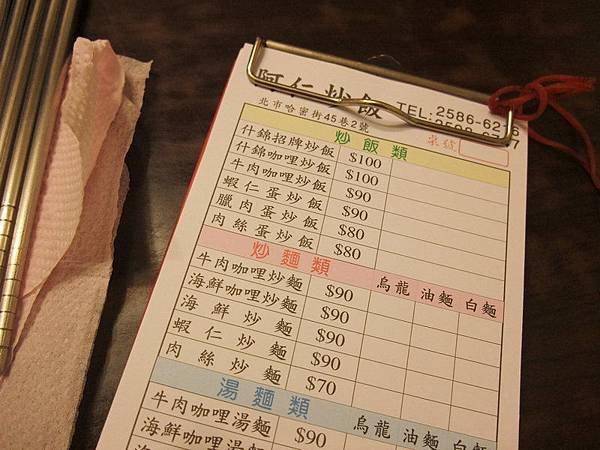 阿仁炒飯
TEL:2586-62
北市哈密街45巷2號
桌號
炒飯類
什錦招牌炒飯 $100
什錦咖哩炒飯 $100
牛肉咖哩炒飯 $90
蝦仁蛋炒飯 $90
臘肉蛋炒飯 $80
肉絲蛋炒飯 $80
炒麵類 烏龍 油麵 白麵
牛肉咖哩炒麵 $90
海鮮咖哩炒麵 $90
海鮮炒麵 $90
蝦仁炒麵 $90
肉絲炒麵 $70
湯麵類 烏龍 油麵 白麵
牛肉咖哩湯麵 $90
海鮮咖哩湯麵